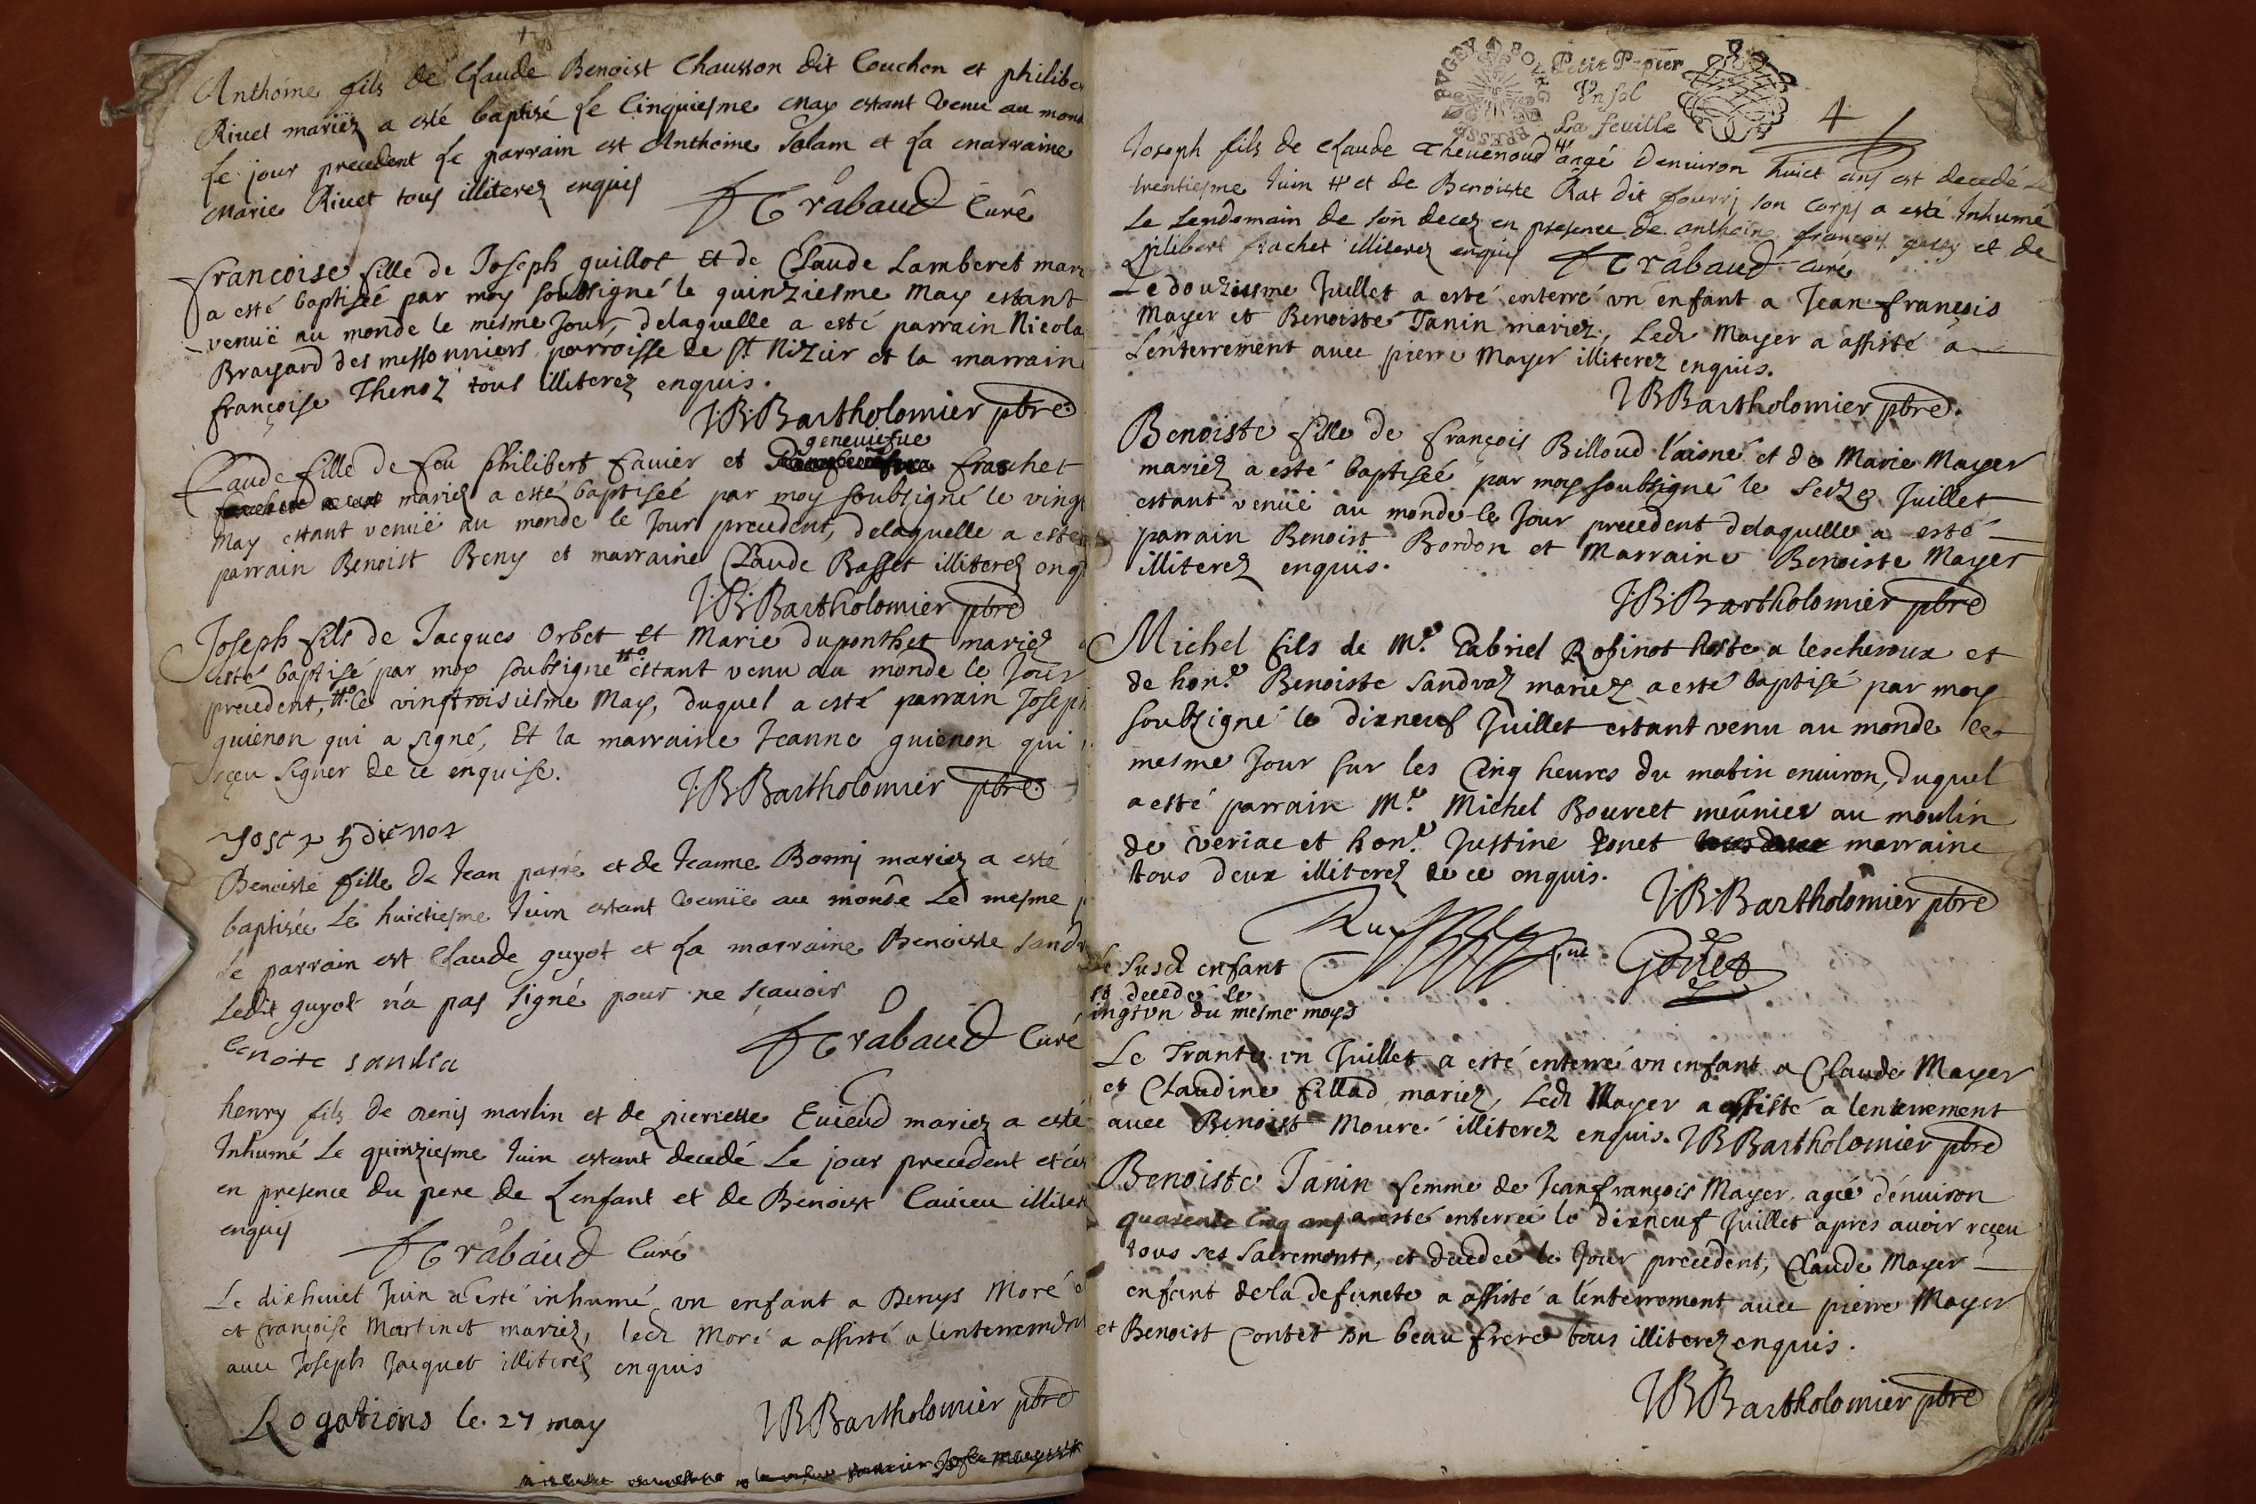 Anthoine fils de Claude Benoist Chausson dit Couchon et philibe
Rivet mariéz a esté baptisé le Cinquiesme may estant venu au mond
le jour precedent le parrain est Anthoine Solam et la marraine
marie Rivet tous illiterez enquis
Trabaud Curé
francoise fille de Joseph guillot Et de Claude Lamberet mari
a esté baptisée par moy soubsigné le quinziesme May estant
venuë au monde le mesme Jour, delaquelle a esté parrain Nicola
Brayard des messonniers parroisse de St Nizier et la marraine
françoise Thenoz tous illiterez enquis.
J:B:Bartholomier pbre
geneviefve
Claude fille de feu Philibert favier et frachet
mariez a esté baptiseé par moy soubsigné le vingt
May estant venuë au monde le Jour precedent, delaquelle a esté
parrain Benoist Beny et marraine Claude Basset illiterez enq
J:B:Bartholomier pbre
Joseph fils de Jacques Orbet Et Marie duponthet mariez
esté baptisé par moy soubsigné estant venu au monde le Jour
precedent, le vingtroisiesme May, duquel a esté parrain Joseph
guienon qui a signé, Et la marraine Jeanne guienon qui
sçeu signer de ce enquise.
J:B:Bartholomier pbre
Benoiste fille de Jean parré et de Jeanne Bonni mariez a esté
baptisée Le huictiesme Juin estant venuë au monde Le mesme j
le parrain est Claude guyot et la marraine Benoiste Sandr
Ledit guyot n'a pas signé pour ne sçauoir
Trabaud Curé
enoite sandra
henry fils de denis marlin et de pierrette Euieud mariez a esté
Inhumé Le quinziesme Juin estant decedé Le jour precedent et ce
en presence du pere de Lenfant et de Benoist Cauieu illiter
enquis
Trabaud Curé
Le dixhuict Juin a esté inhumé vn enfant a Denys Moré
et françoise Martinet mariez, ledt Moré a assisté a lenterrement
auec Joseph Jacquet illiterez enquis
J:B:Bartholomier pbre
Rogations le 27 may
BVGEY
Petit Papier
Vn sol
La feuille
4
Joseph fils de Claude Theuenoud aagé denuiron huict ans est decedé le
trentiesme Juin et de Benoiste Rat dit fourri son corps a esté Inhumé
Le Lendemain de son decez en presence de anthoine françois et de
philibert frachet illiterez enquis Trabaud Curé
Le douziesme Juillet a esté enterré vn enfant a Jean françois
Mayer et Benoiste Janin mariez, Ledt Mayer a assisté a
Lenterrement auec pierre Mayer illiterez enquis.
J B Bartholomier pbre
Benoiste fille de françois Billoud l'aisné et de Marie Mayer
mariez a esté baptiseé par moy soubsigné le Seize Juillet
estant venuë au monde le Jour precedent delaquelle a esté
parrain Benoist Bordon et Marraine Benoiste Mayer
illiterez enquis.
J:B:Bartholomier pbre
Michel fils de Me Gabriel Robinot hoste a lescheroux et
de hone Benoiste Sandraz mariez a esté baptisé par moy
soubsigné le dixneuf Juillet estant venu au monde le
mesme Jour sur les Cinq heures du matin enuiron, duquel
a esté parrain Me Michel Bourcet meûnier au moulin
de veriac et hone Justine marraine
tous deux illiterez de ce enquis.
J:B:Bartholomier pbre
Le susdt enfant
decedé le
ingtvn du mesme moys
Le Trante vn Juillet a esté enterré vn enfant a Claude Mayer
et Claudine fillad mariez, Ledt Mayer a assisté a lenterrement
auec Benoist Mouré illiterez enquis. J B Bartholomier pbre
Benoiste Janin femme de Jeanfrançois Mayer, agée d'enuiron
quarente Cinq ans a esté enterrée le dixneuf Juillet apres auoir reçeu
tous ses sacrements, et decedeé le Jour precedent, Claude Mayer
enfant dela defuncte a assisté a l'enterrement auec pierre Mayer
et Benoist Contet son beau frere tous illiterez enquis.
J B Bartholomier pbre